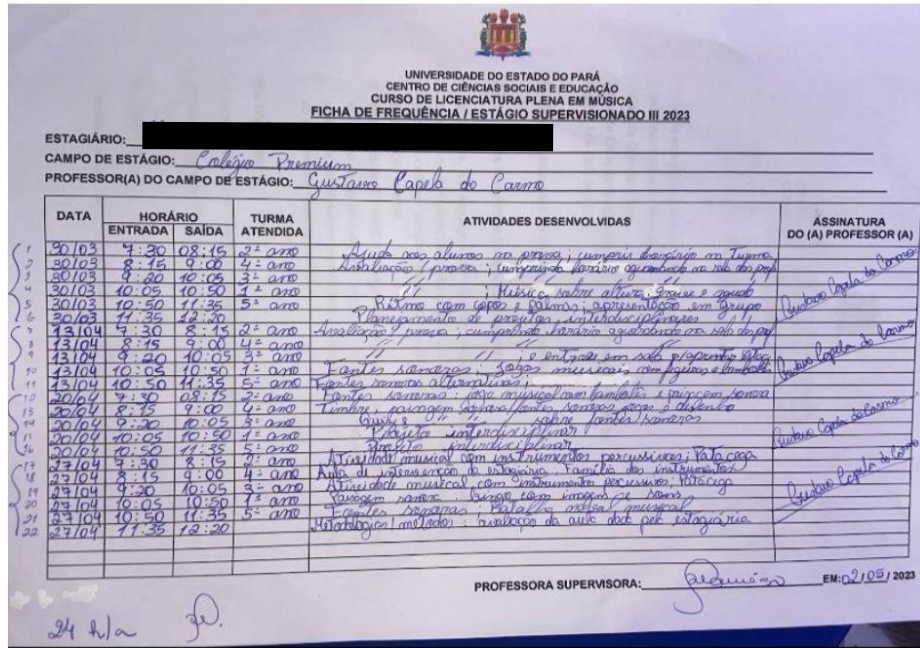 UNIVERSIDADE DO ESTADO DO PARÁ
CENTRO DE CIÊNCIAS SOCIAIS E EDUCAÇÃO
CURSO DE LICENCIATURA PLENA EM MÚSICA
FICHA DE FREQUÊNCIA / ESTÁGIO SUPERVISIONADO III 2023
ESTAGIÁRIO:
CAMPO DE ESTÁGIO: Colégio Premium
PROFESSOR(A) DO CAMPO DE ESTÁGIO: Gustavo Capela do Carmo
DATA HORÁRIO TURMA ATENDIDA ATIVIDADES DESENVOLVIDAS ASSINATURA DO (A) PROFESSOR (A)
ENTRADA SAÍDA
1 30/03 7:30 08:15 2º ano Ajuda aos alunos na prova; cumpriu horário na Turma
2 30/03 8:15 9:00 4º ano Avaliação / prova; cumprindo horário aguardando na sala dos prof
3 30/03 9:20 10:05 3º ano
4 30/03 10:05 10:50 1º ano // ; Música sobre altura, grave e agudo
5 30/03 10:50 11:35 5º ano Ritmo com copos e palmas; apresentação em grupo
6 30/03 11:35 12:20 Planejamento de projetos interdisciplinares
Gustavo Capela do Carmo
7 13/04 7:30 8:15 2º ano Avaliação / prova; cumprindo horário aguardando na sala do prof
8 13/04 8:15 9:00 4º ano // //
9 13/04 9:20 10:05 3º ano // // e entrou em sala
10 13/04 10:05 10:50 1º ano Fontes sonoras; Jogos musicais com figuras e
11 13/04 10:50 11:35 5º ano Fontes sonoras alternativas;
Gustavo Capela do Carmo
12 20/04 7:30 08:15 2º ano Fontes sonoras: jogo musical com
13 20/04 8:15 9:00 4º ano Timbre, paisagem sonora/fontes sonoras, jogos e desenho
14 20/04 9:20 10:05 3º ano sobre fontes sonoras
15 20/04 10:05 10:50 1º ano Projeto interdisciplinar
16 20/04 10:50 11:35 5º ano Projeto interdisciplinar
Gustavo Capela do Carmo
17 27/04 7:30 8:15 2º ano Atividade musical com instrumentos percussivos; Pata cega
18 27/04 8:15 9:00 4º ano Aula de intervenção da estagiária. Família dos instrumentos
19 27/04 9:20 10:05 3º ano Atividade musical com instrumentos percussivos; Pata cega
20 27/04 10:05 10:50 1º ano Paisagem sonora: bingo com imagens e sons
21 27/04 10:50 11:35 5º ano Fontes sonoras: Batalha naval musical
22 27/04 11:35 12:20 Metodologias / métodos: avaliação da aula dada pela estagiária
Gustavo Capela do Carmo
PROFESSORA SUPERVISORA: EM: 02/05/2023
24 h/a